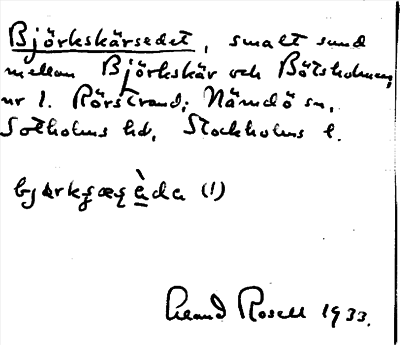 Björkskärsedet, smalt sund
mellan Björkskär och Båtsholmen,
nr 1. Rörstrand; Nämdö sn,
Sotholms hd, Stockholms l.
èda (!)
Rosell 1933.